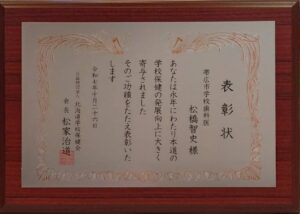 表彰状
帯広市学校歯科医
松橋智史 様
あなたは永年にわたり本道の
学校保健の発展向上に大きく
寄与されました
そのご功績をたたえ表彰いた
します
令和七年十月二十六日
公益財団法人 北海道学校保健会
会長 松家治道